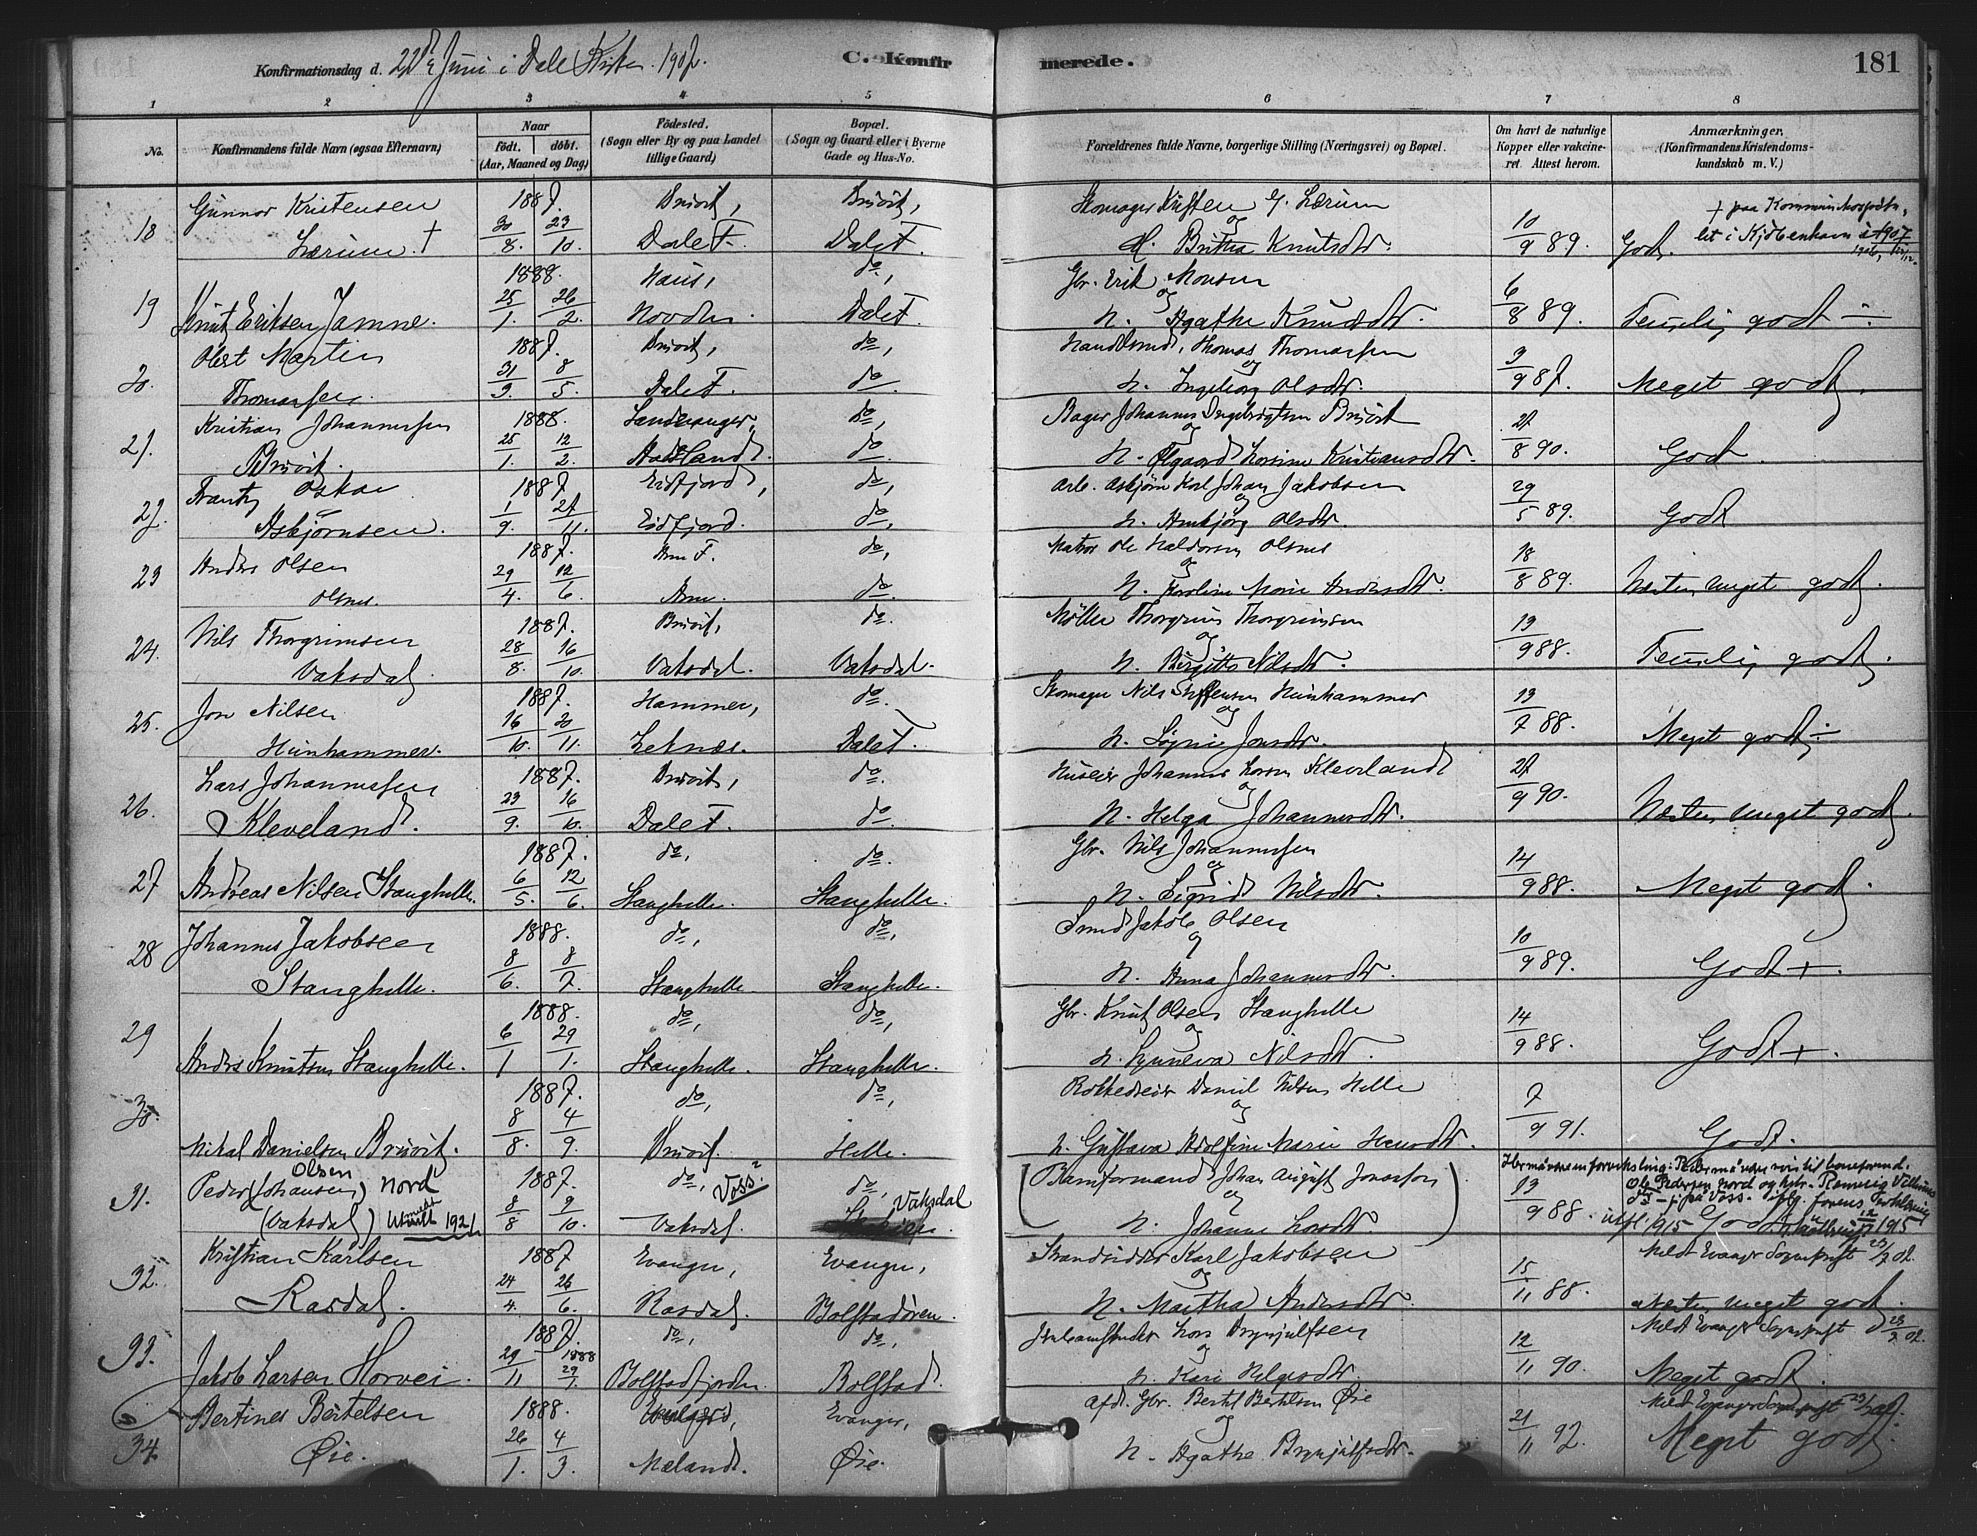 Konfirmationsdag d. 22de Juni i Dale Kirke 1902.
C. Konfirmerede.
181
1 2 3 4 5 6 7 8
No.
Konfirmandens fulde Navn (ogsaa Efternavn)
Naar
födt. döbt.
(Aar, Maaned og Dag)
Födested.
(Sogn eller By og paa Landet
tillige Gaard)
Bopæl.
(Sogn og Gaard eller i Byerne
Gade og Hus-No.
Forældrenes fulde Navne, borgerlige Stilling (Næringsvei) og Bopæl.
Om havt de naturlige
Kopper eller vakcine-
ret. Attest herom.
Anmærkninger.
(Konfirmandens Kristendoms-
kundskab m. V.)
Gunnar Kristensen 1887. Bruvik, Bruvik, Skomager Kristen G. Lærum og + paa Kommunehospita-
18 Lærum. † 30/8. 23/10. Dale F. Dale F. H. Britha Knutsdtr. 10/9 89. Godt. let i Kjöbenhavn
1888. Haus, do, Gbr. Erik Monsen og
19 Knut Eriksen Jamne. 25/1. 26/2. Dale F. H. Agathe Knudsdtr. 6/8 89. Temlig godt ÷
Olert Martin 1887. Bruvik, do, Thomas Thomassen og
20. Thomassen. 31/3. 8/5. Dale F. do H. Ingeborg Olsdtr. 3/9 87. Meget godt.
Kristian Johannessen 1888. do, Bager Johannes Ingebrigtsen Bruvik og
21. Bruvik. 25/1. 12/2. do H. Kristiansdtr. 27/8 90. Godt.
Frantz Oskar 1887 Eidfjord, do, Arb. Asbjörn Karl Johan Jakobsen og
22. Asbjörnsen. 1/9. 27/11. Eidfjord. do, H. Olsdtr. 29/5 89. Godt
Anders Olsen 1887. Arne F. do, Matros Ole Haldorsen Olsnes og
23 Olsnes. 29/4. 12/6. Arne. do H. Karoline Marie Andersdtr. 18/8 89. Næsten meget godt.
Nils Thorgrimsen 1887. Bruvik, do. Möller Thorgrim Thorgrimsen og
24. Vaksdal. 28/8. 16/10. Vaksdal. Vaksdal. H. Birgitte Nilsdtr. 13/9 88. Temlig godt.
Jon Nilsen 1887. Hammer, do. Skomager Nils Steffensen Hünhammer og
25. Hünhammer. 16/10. 20/11. Dale F. H. Jonsdtr. 13/7 88. Meget godt ÷
Lars Johannessen 1887. Bruvik, do. Huseier Johannes Larsen Kleveland og
26. Kleveland. 23/9. 16/10. Dale F. do H. Helga Johannesdtr. 27/9 90. Næsten meget godt.
1887. do, do. Gbr. Nils Johannessen og
27 Andreas Nilsen Stanghelle. 6/5. 12/6. Stanghelle. Stanghelle. H. Sigrid Nilsdtr. 14/9 88. Meget godt.
Johannes Jakobsen 1888. do, do, Smed Jakob Olsen og
28 Stanghelle. 8/6. 8/7. Stanghelle Stanghelle. H. Anna Johannesdtr. 10/9 89. Godt +.
1888. do, do, Gbr. Knut Olsen Stanghelle og
29 Anders Knutsen Stanghelle. 6/1 29/1. Stanghelle. Stanghelle. H. Synneva Nilsdtr. 14/9 88. Godt +.
1887. do, do, Daniel Nilsen Helle og
30. Mikal Danielsen Bruvik. 8/8. 4/9. Bruvik. Helle. H. Gustava Adolfine Marie Hansdtr. 7/9 91. Godt.
31. Peder (Johansen) Olsen Nord 1887. do, Voss? do, Vaksdal (Johan August Jonasson og
(Vaksdal) Utmeldt 1921 8/8 9/10. Vaksdal. H. Johanne Larsdtr.) 13/9 88. Godt
Kristian Karlsen 1887 Evanger, Evanger, Strandsidder Karl Jakobsen og Meldt Evanger Sogneprest 23/7 02.
32. Rasdal. 24/4. 26/6. Rasdal. Bolstadören. H. Martha Andersdtr. 15/11 88. Næsten meget godt.
1887 do, do, Lars Brynjulfsen Meldt Evanger Sogneprest 23/7 02.
33. Jakob Larsen Horvei. 29/11 1888 29/1. Bolstadfjorden. Bolstad. H. Kari Helgesdtr. 12/11 90. Meget godt.
Bertines Bertelsen 1888. Evanger, afd. Gbr. Bertel Bertelsen Øie og Meldt Evanger Sogneprest 23/7 02.
34. Øie. 26/1. 4/3. Mæland. Øie. H. Agathe Brynjulfsdtr. 21/11 92. Meget godt.